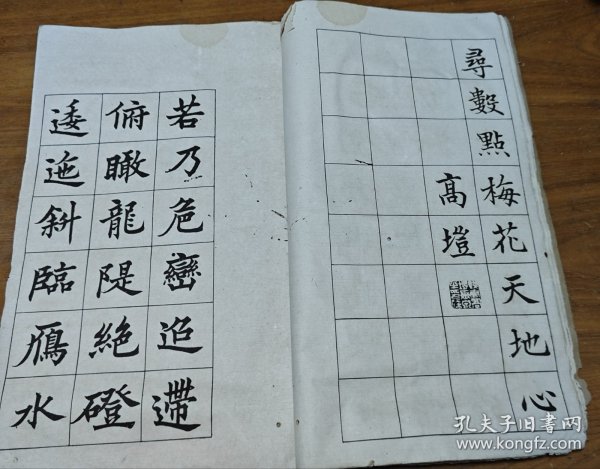 尋數點梅花天地心
高塏
若乃危巒迢遰
俯瞰龍隄絕磴
逶迤斜臨鴈水
孔夫子旧书网
www.kongfz.com